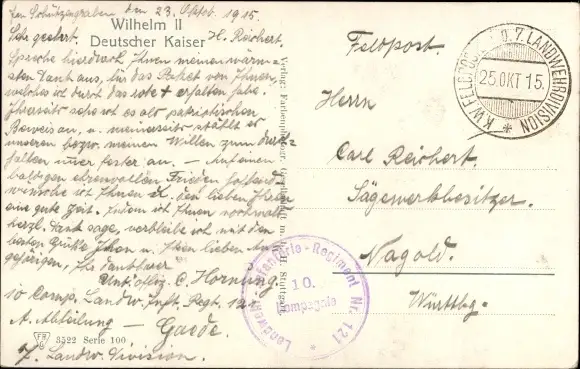 Im Schützengraben den 23. Oktob. 1915.
Wilhelm II
Deutscher Kaiser
Sehr geehrt. H. Reichert.
Spreche hierdurch Ihnen meinen wärm-
sten Dank aus, für das Paket von Ihnen,
welches ich durch das rote + erhalten habe.
Ihrerseits sehe ich es als patriotischen
Beweis an, u. meinerseits stählt es
unseren bezw. meinen Willen zum durch-
halten immer fester an. — Auf einen
baldigen ehrenvollen Frieden hoffend
wünsche ich Ihnen u. den lieben Ihren
eine gute Zeit. Indem ich Ihnen nochmals
herzl. Dank sage, verbleibe ich mit den
besten Grüße Ihnen u. Ihren lieben An-
gehörigen, Ihr dankbarer
Unt. offiz. C. Hornung.
10 Comp. Landw. Inft. Regt. 121
A. Abteilung — Gaede.
7. Landw. Division.
3522 Serie 100
Stuttgart
Feldpost.
K.W. FELDPOST
D. 7. LANDWEHRDIVISION
25.OKT 15.
Herrn
Carl Reichert.
Sägewerkbesitzer.
Nagold.
Württbg.
Landwehr-Infanterie-Regiment Nr. 121
10.
Kompagnie